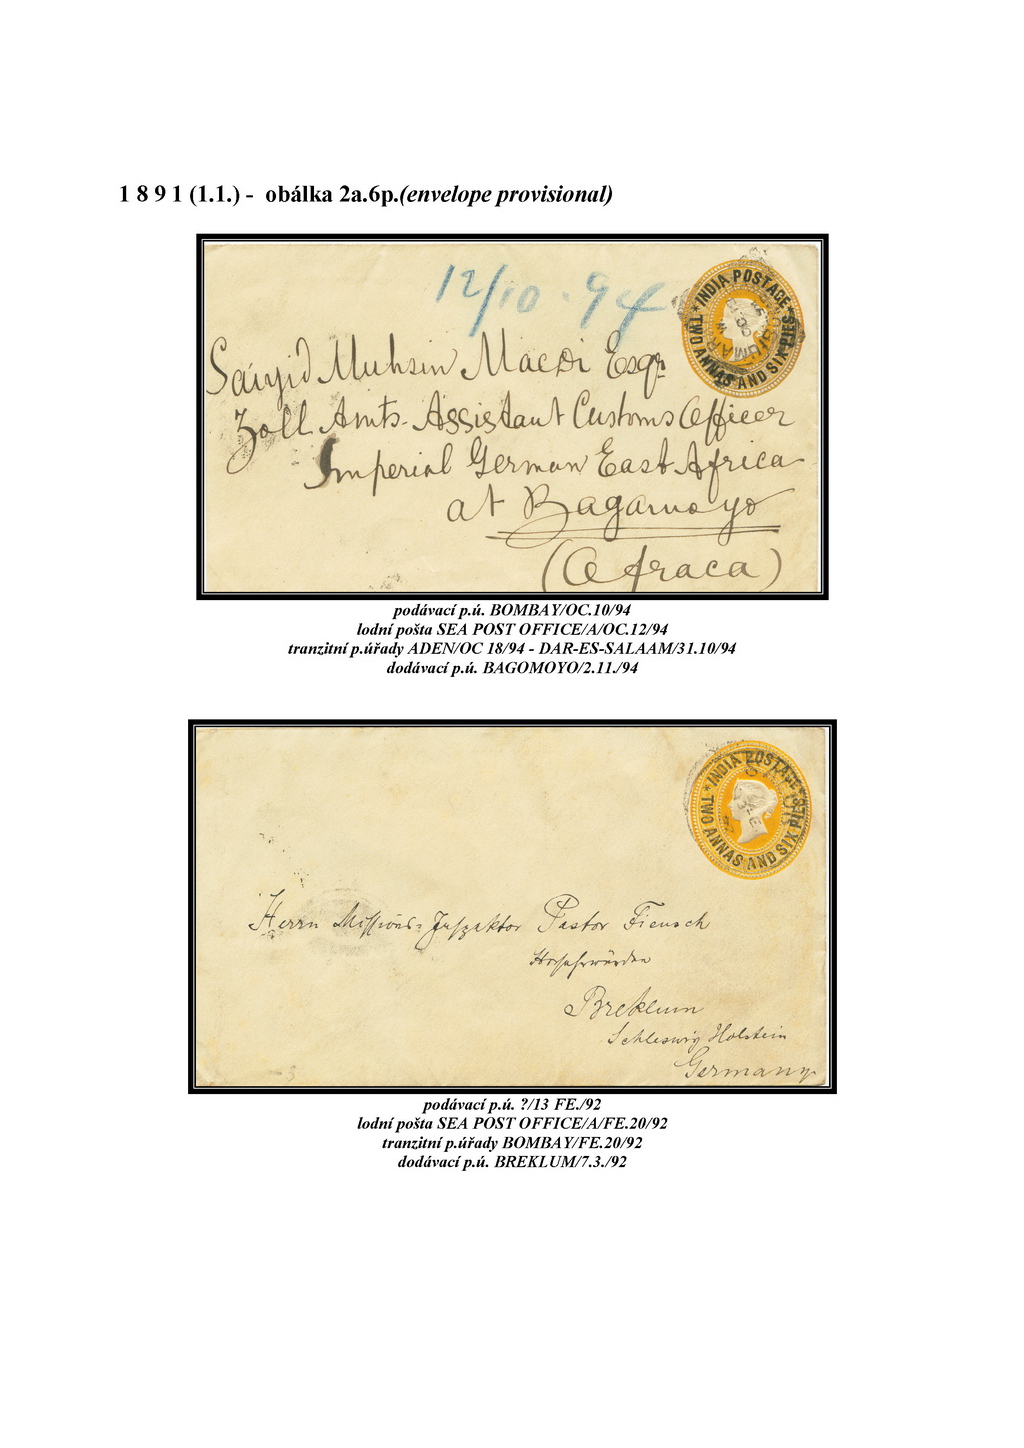 1 8 9 1 (1.1.) - obálka 2a.6p.(envelope provisional)
12/10.94
INDIA POSTAGE
TWO ANNAS AND SIX PIES
Saiyid Muhsin Esqr
Zoll Amts-Assistant Customs Officer
Imperial German East Africa
at Bagamoyo
(Afraca)
podávací p.ú. BOMBAY/OC.10/94
lodní pošta SEA POST OFFICE/A/OC.12/94
tranzitní p.úřady ADEN/OC 18/94 - DAR-ES-SALAAM/31.10/94
dodávací p.ú. BAGOMOYO/2.11./94
INDIA POSTAGE
TWO ANNAS AND SIX PIES
Herrn Missions-Inspektor Pastor Fiensch
Hochehrwürden
Breklum
Schleswig Holstein
Germany
podávací p.ú. ?/13 FE./92
lodní pošta SEA POST OFFICE/A/FE.20/92
tranzitní p.úřady BOMBAY/FE.20/92
dodávací p.ú. BREKLUM/7.3./92